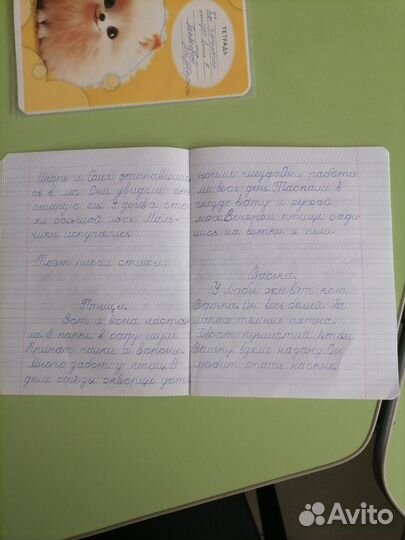 ТЕТРАДЬ
Игорь и Саня отправились
в лес. Они увидели
старую ель. У дерева стоял
большой лось. Мальчики
испугались.
Поэт писал стихи.
Птицы.
Вот и весна настала.
В парке в саду шум.
Кричат галки и вороны.
Много забот у птиц. В
дупле берёзы скворцы уст-
роили гнездо. Они работа
ли весь день. Таскали в
гнездо вату и сухой
мох. Вечером птицы сади
лись на ветки и пели.
Васька.
У Люды живёт кот
Васька. Он весь белый. На
лапках тёмные пятна.
Хвост пушистый. Летом
Ваську взяли на дачу. Он
любит спать на окне.
Avito